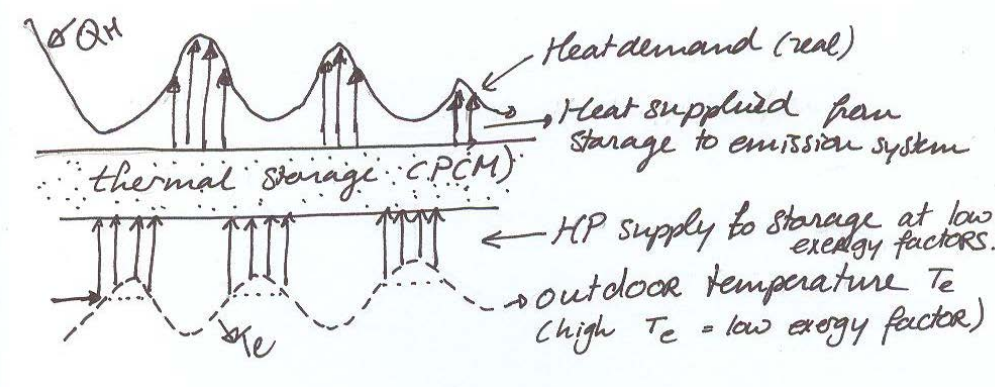 QH
Heat demand (real)
Heat supplied from
storage to emission system
thermal storage (PCM)
HP supply to storage at low
exergy factors.
outdoor temperature Te
(high Te = low exergy factor)
Te